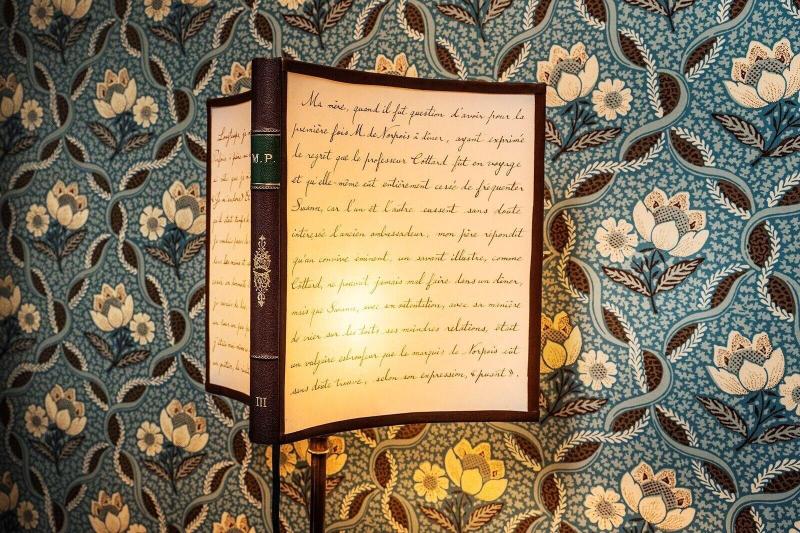 Longtemps, je
M.P.
III
Ma mère, quand il fut question d'avoir pour la
première fois M. de Norpois à dîner, ayant exprimé
le regret que le professeur Cottard fût en voyage
et qu'elle-même eût entièrement cessé de fréquenter
Swann, car l'un et l'autre eussent sans doute
intéressé l'ancien ambassadeur, mon père répondit
qu'un convive éminent, un savant illustre, comme
Cottard, ne pouvait jamais mal faire dans un dîner,
mais que Swann, avec son ostentation, avec sa manière
de crier sur les toits ses moindres relations, était
un vulgaire esbroufeur que le marquis de Norpois eût
sans doute trouvé, selon son expression, « puant ».